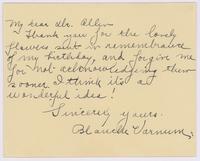 My dear Mr. Allen
Thank you for the lovely
flowers sent in remembrance
of my birthday, and forgive me
for not acknowledging them
sooner. I think it's a
wonderful idea!
Sincerely yours.
Blanche Varnum.